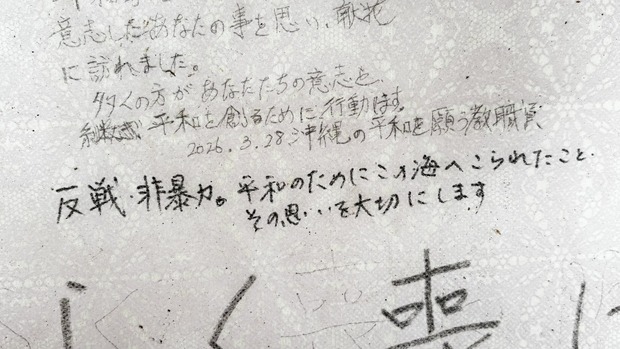 意志したあなたの事を思い、献花
に訪れました。
多くの方があなたたちの意志を
継ぎ 平和を創るために行動します。
2026.3.28 沖縄の平和を願う教職員
反戦・非暴力。平和のためにこの海へこられたこと。
その思いを大切にします
しく 喪